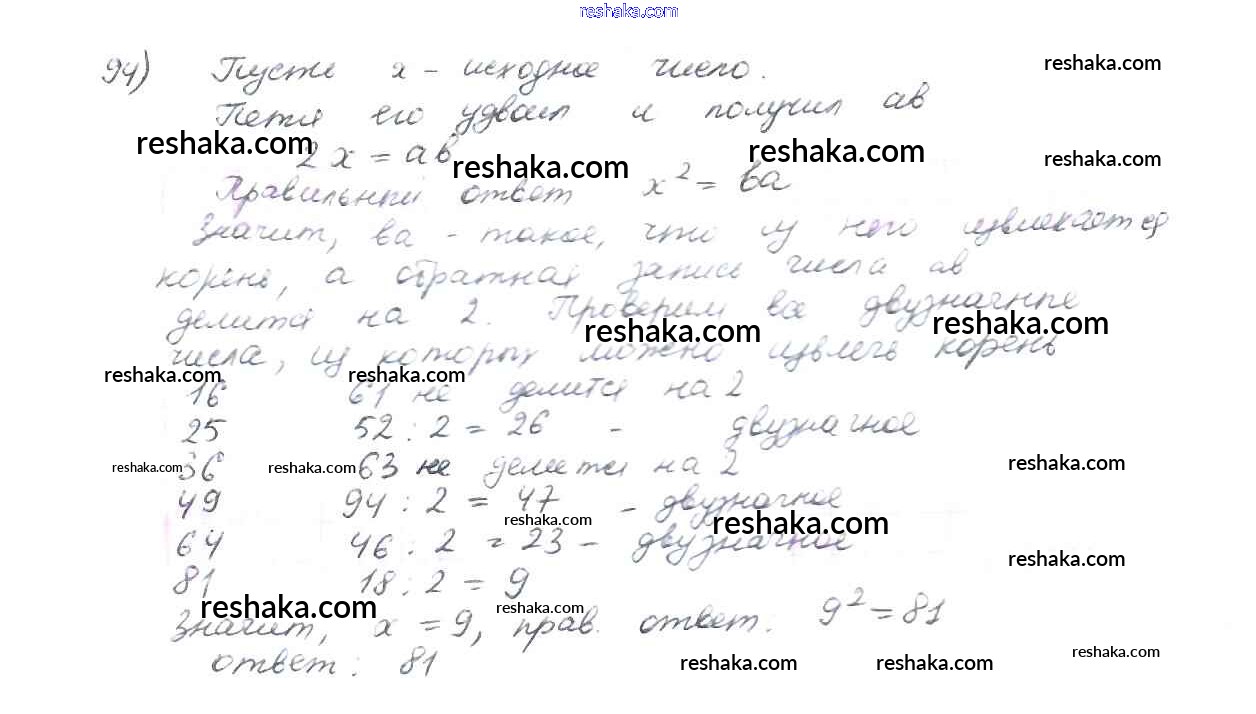 reshaka.com
94) Пусть x - исходное число.
reshaka.com
Петя его удвоил и получил ав
reshaka.com
2x = ав
reshaka.com
reshaka.com
reshaka.com
Правильный ответ x² = ва
Значит, ва - такое, что из него извлекается
корень, а обратная запись числа ав
делится на 2. Проверим все двузначные
reshaka.com
reshaka.com
числа, из которых можно извлечь корень
reshaka.com
reshaka.com
16 61 не делится на 2
25 52 : 2 = 26 - двузначное
reshaka.com
reshaka.com
36 63 не делится на 2
reshaka.com
49 94 : 2 = 47 - двузначное
reshaka.com
reshaka.com
64 46 : 2 = 23 - двузначное
reshaka.com
81 18 : 2 = 9
reshaka.com
reshaka.com
Значит, x = 9, прав. ответ: 9² = 81
ответ: 81
reshaka.com
reshaka.com
reshaka.com